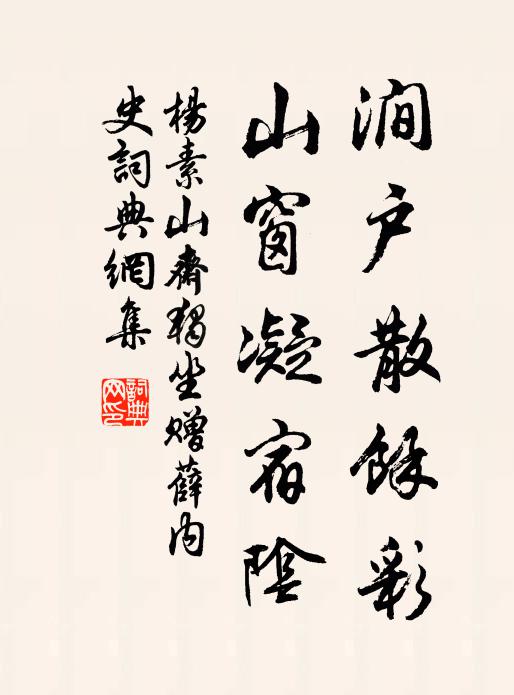 澗户散餘彩
山窗凝宿陰
楊素山齋獨坐贈薛内
史詞典網集
詞典网印